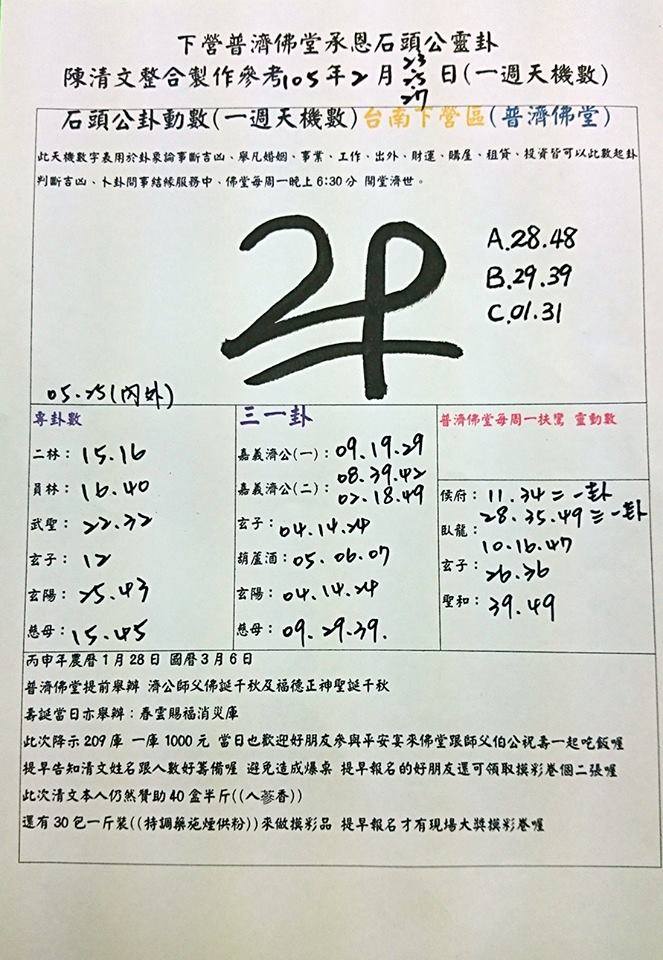 下營普濟佛堂承恩石頭公靈卦
陳清文整合製作參考105年2月23.25.27日(一週天機數)
石頭公卦動數(一週天機數)台南下營區(普濟佛堂)
此天機數字表用於卦象論事斷吉凶、舉凡婚姻、事業、工作、出外、財運、購屋、租貸、投資皆可以此數起卦
判斷吉凶、卜卦問事結緣服務中、佛堂每周一晚上6:30分 開堂濟世。
A.28.48
B.29.39
C.01.31
05.25(內外)
專卦數
二林：15.16
員林：16.40
武聖：22.32
玄子：12
玄陽：25.43
慈母：15.45
三一卦
嘉義濟公(一)：09.19.29
08.39.42
嘉義濟公(二)：02.18.49
玄子：04.14.24
葫蘆酒：05.06.07
玄陽：04.14.24
慈母：09.29.39.
普濟佛堂每周一扶鸞 靈動數
侯府：11.34=一卦
28.35.49三一卦
臥龍：
10.16.47
玄子：26.36
聖和：39.49
丙申年農曆1月28日 國曆3月6日
普濟佛堂提前舉辦 濟公師父佛誕千秋及福德正神聖誕千秋
壽誕當日亦舉辦：春雲賜福消災庫
此次降示209庫 一庫1000元 當日也歡迎好朋友參與平安宴來佛堂跟師父伯公祝壽一起吃飯喔
提早告知清文姓名跟人數好籌備喔 避免造成爆桌 提早報名的好朋友還可領取摸彩卷個二張喔
此次清文本人仍然贊助40盒半斤((人蔘香))
還有30包一斤裝((特調藥施煙供粉))來做摸彩品 提早報名才有現場大獎摸彩卷喔